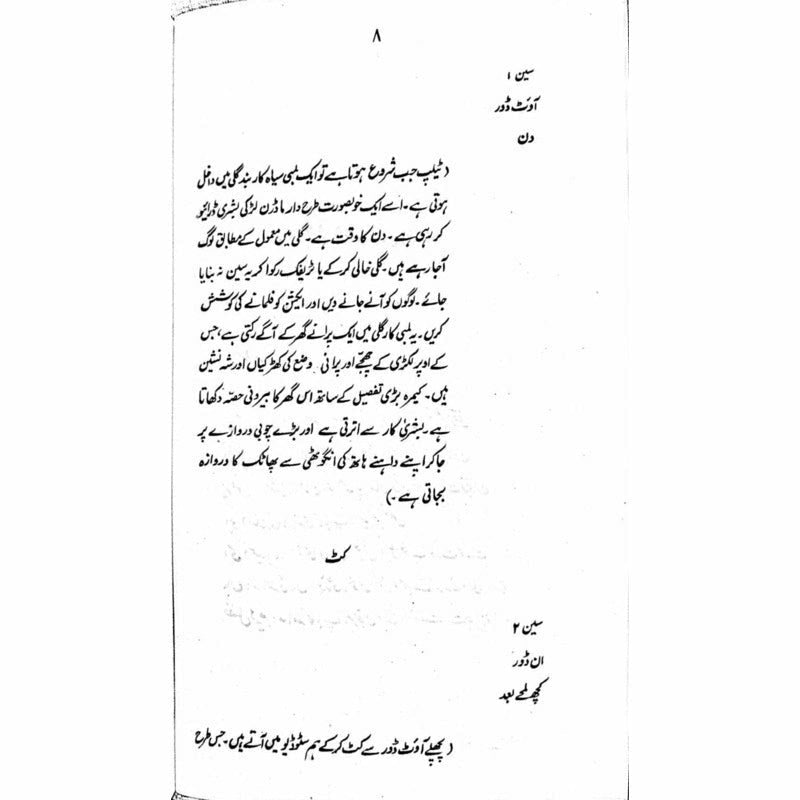 ۸
سین ۱
آؤٹ ڈور
دن
( ٹیلپ جب شروع ہوتا ہے تو ایک لمبی سیاہ کار بند گلی میں داخل
ہوتی ہے۔ اسے ایک خوبصورت طرح دار ماڈرن لڑکی بشریٰ ڈرائیو
کر رہی ہے۔ دن کا وقت ہے۔ گلی میں معمول کے مطابق لوگ
آجا رہے ہیں۔ گلی خالی کر کے یا ٹریفک رکوا کر یہ سین نہ بنایا
جائے۔ لوگوں کو آنے جانے دیں اور ایکشن کو فلمانے کی کوشش
کریں۔ یہ لمبی کار گلی میں ایک پرانے گھر کے آگے رکتی ہے، جس
کے اوپر لکڑی کے چھجے اور پرانی وضع کی کھڑکیاں اور شہ نشین
ہیں۔ کیمرہ بڑی تفصیل کے ساتھ اس گھر کا بیرونی حصہ دکھاتا
ہے۔ بشریٰ کار سے اترتی ہے اور بڑے چوبی دروازے پر
جا کر اپنے داہنے ہاتھ کی انگوٹھی سے پھاٹک کا دروازہ
بجاتی ہے۔)
کٹ
سین ۲
ان ڈور
کچھ لمحے بعد
( پچھلے آؤٹ ڈور سے کٹ کر کے ہم سٹوڈیو میں آتے ہیں۔ جس طرح